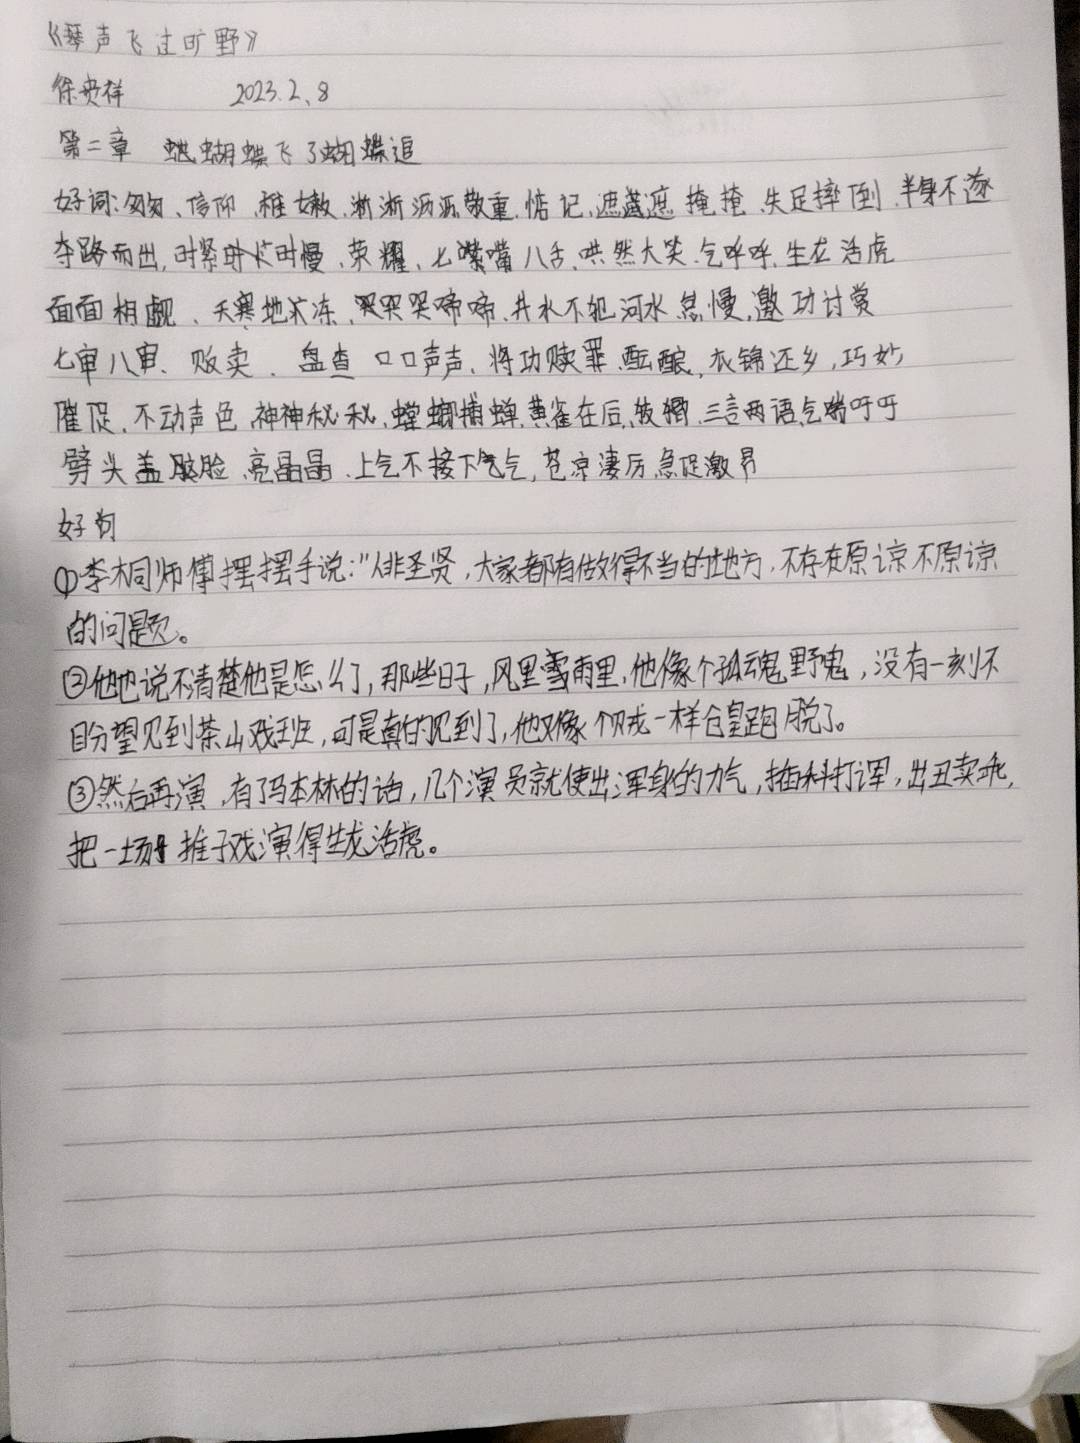 《琴声飞过旷野》
徐贵祥 2023.2.8
第二章 蝴蝶飞了蝴蝶追
好词:匆匆、信仰、稚嫩、淅淅沥沥、敬重、惦记、遮遮掩掩、失足摔倒、半身不遂
夺路而出,时紧时慢,荣耀、七嘴八舌、哄然大笑、气呼呼、生龙活虎
面面相觑、天寒地冻、哭哭啼啼、井水不犯河水、怠慢、邀功讨赏
七审八审、贩卖、盘查、口口声声、将功赎罪、酝酿、衣锦还乡,巧妙
催促、不动声色、神神秘秘、螳螂捕蝉,黄雀在后、三言两语、气喘吁吁
劈头盖脸、亮晶晶、上气不接下气,苍凉凄厉、急促激昂
好句
①李桐师傅摆摆手说:"人非圣贤,大家都有做得不当的地方,不存在原谅不原谅
的问题。
②他也说不清楚他是怎么了,那些日子,风里雪雨里,他像个孤魂野鬼,没有一刻不
盼望见到茶山戏班,可是真的见到了,他又像个贼一样仓皇跑脱了。
③然后再演,有了冯本林的话,几个演员就使出浑身的力气,插科打诨,出丑卖乖,
把一场推子戏演得生龙活虎。